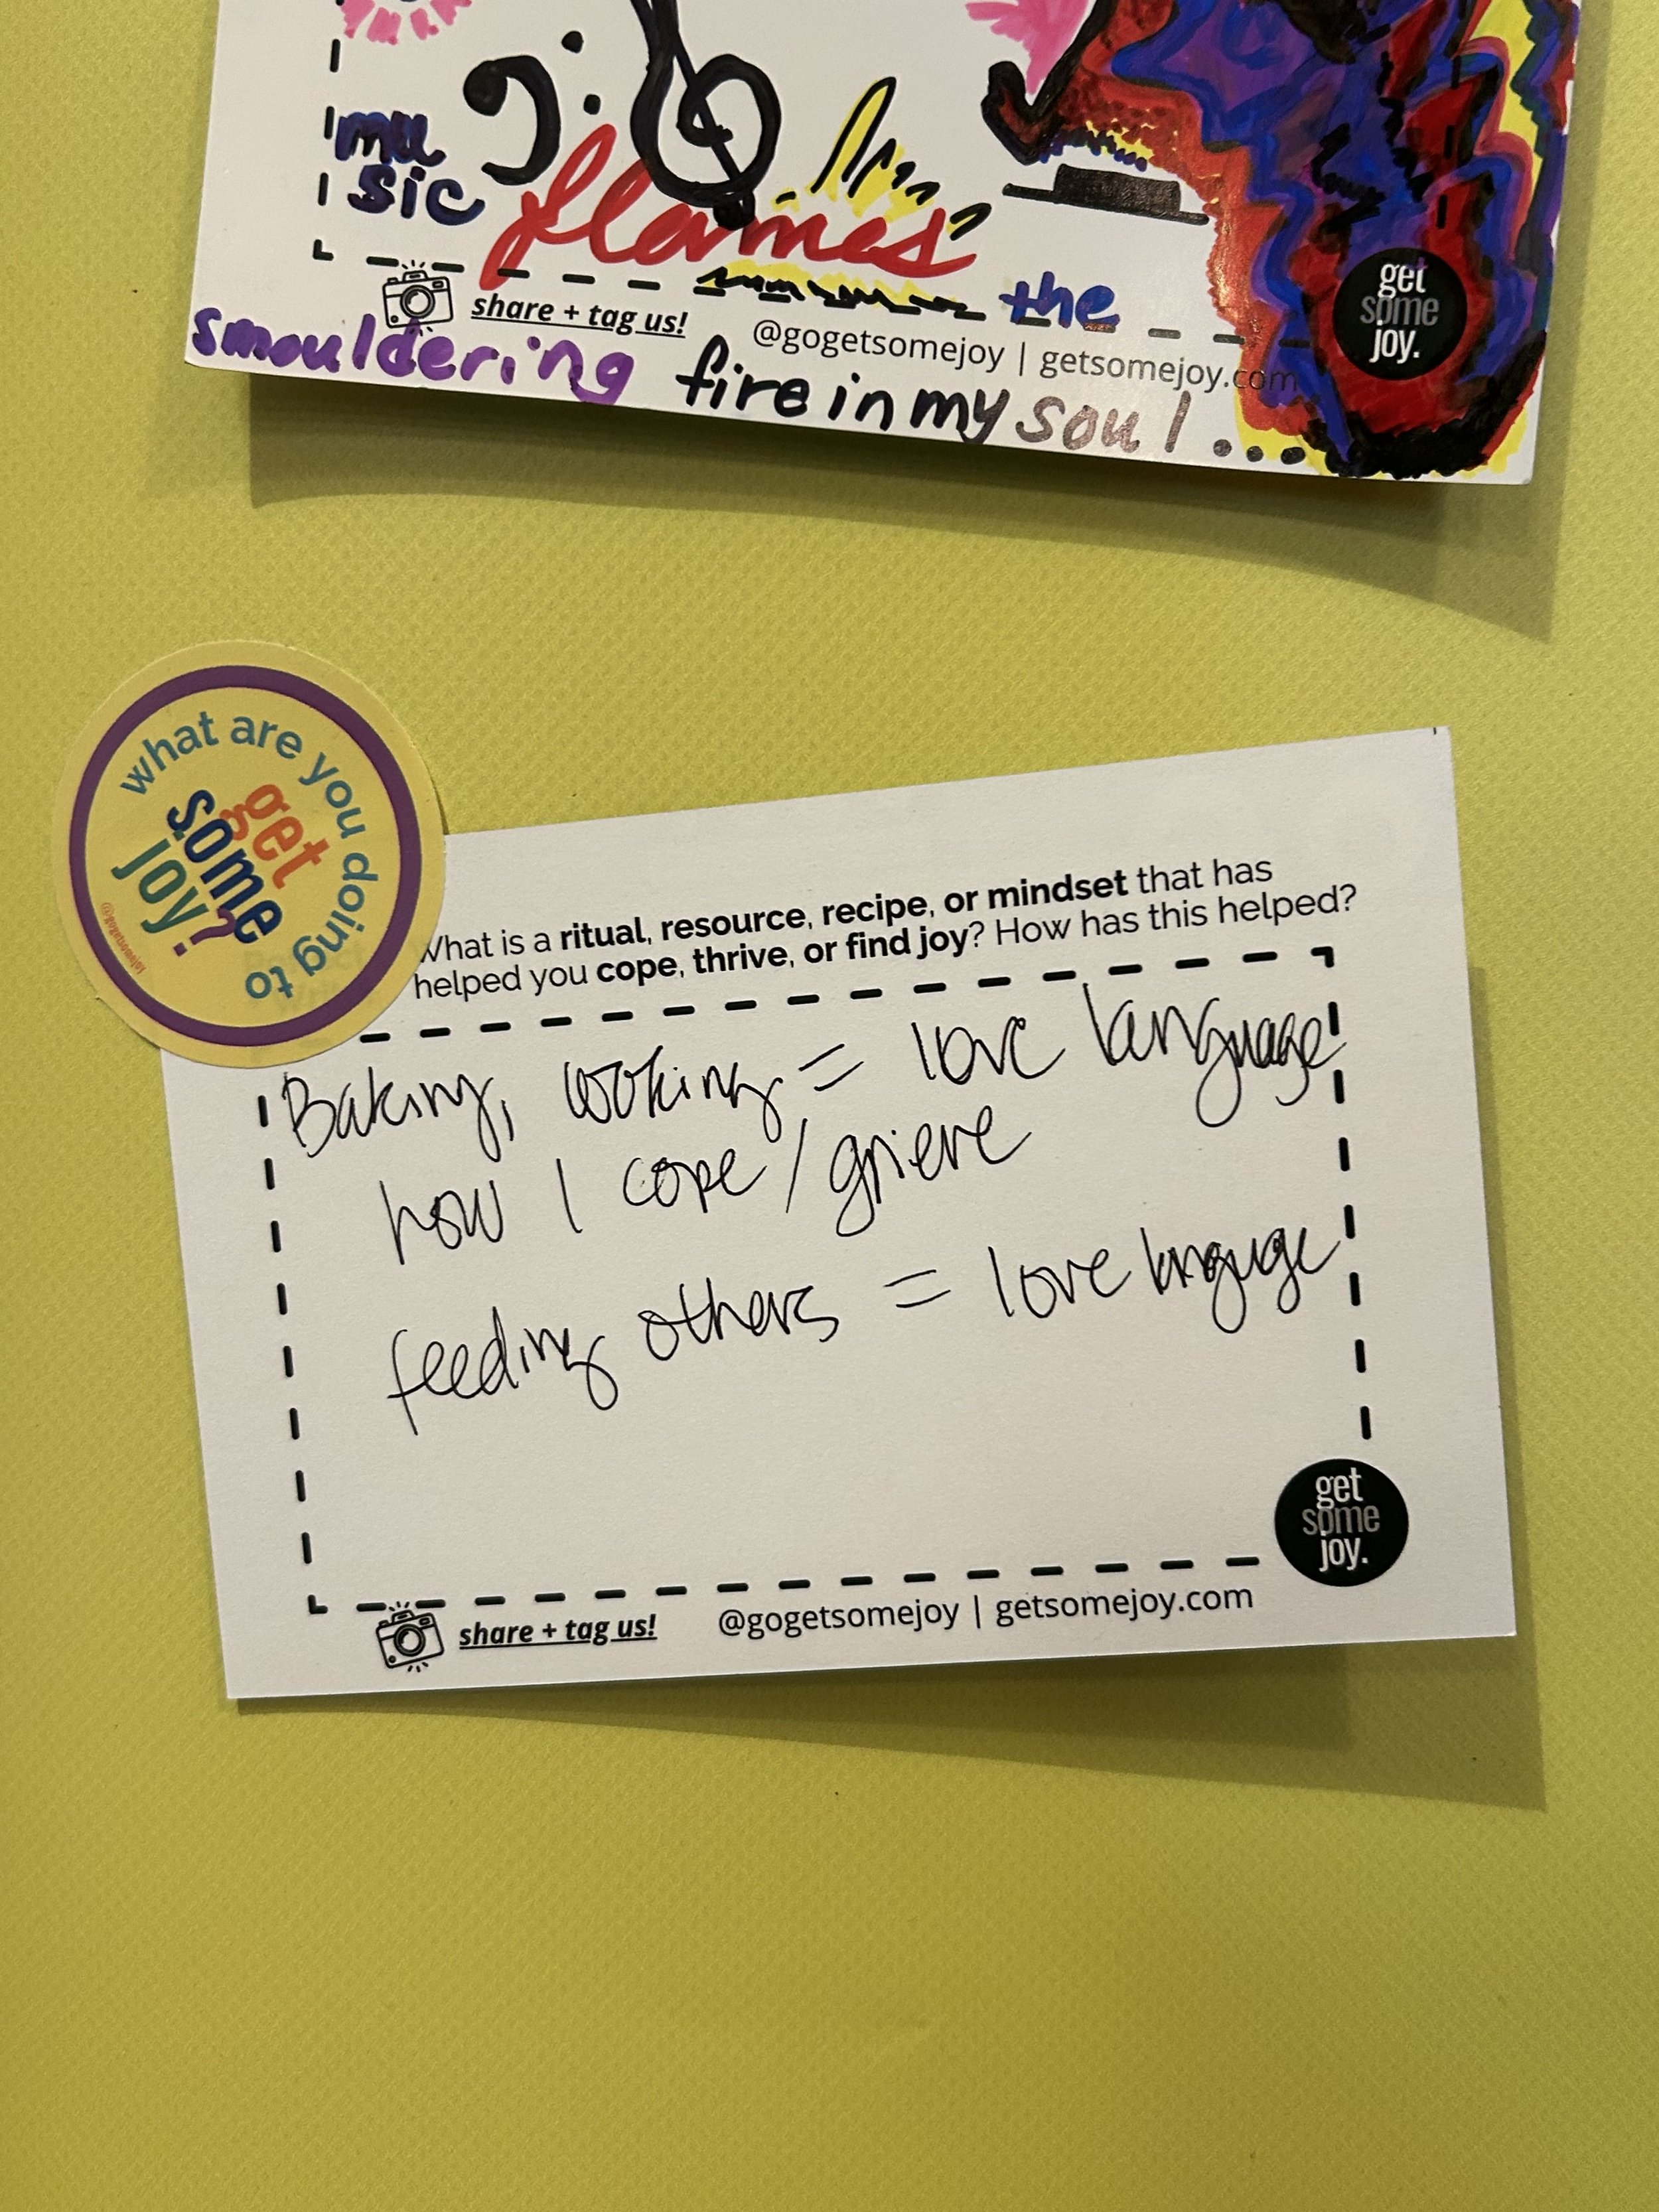 mu
sic
flames
the
share + tag us!
@gogetsomejoy | getsomejoy.com
smouldering fire in my soul...
get
some
joy.
what are you doing to
get
some
joy?
What is a ritual, resource, recipe, or mindset that has
helped you cope, thrive, or find joy? How has this helped?
Baking, cooking = love language
how I cope / grieve
feeding others = love language
get
some
joy.
share + tag us!
@gogetsomejoy | getsomejoy.com